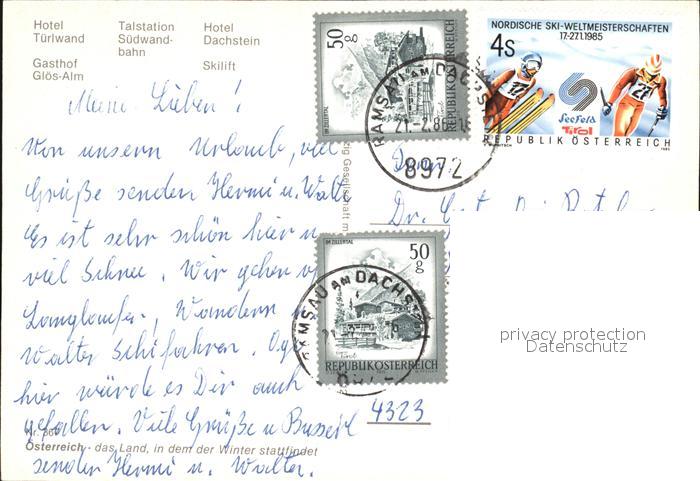 Hotel Türlwand
Talstation Südwand-bahn
Hotel Dachstein
Gasthof Glös-Alm
Skilift
Meine Lieben!
Von unserm Urlaub, viel
Grüße senden Hermi u. Walt
Es ist sehr schön hier u
viel Schnee. Wir gehen
Langlaufen, Wandern
Walter Schifahren.
hier würde es Dir auch
gefallen. Viele Grüße u. Busserl
senden Hermi u. Walter.
Österreich - das Land, in dem der Winter stattfindet
IM ZILLERTAL
50 g
REPUBLIK ÖSTERREICH
NORDISCHE SKI-WELTMEISTERSCHAFTEN
17-27.1.1985
4S
17
Seefeld
Tirol
REPUBLIK ÖSTERREICH
1985
RAMSAU AM DACHST
21.-2.85
8972
Dr.
IM ZILLERTAL
50 g
Tirol
REPUBLIK ÖSTERREICH
RAMSAU AM DACHST
4323
privacy protection
Datenschutz